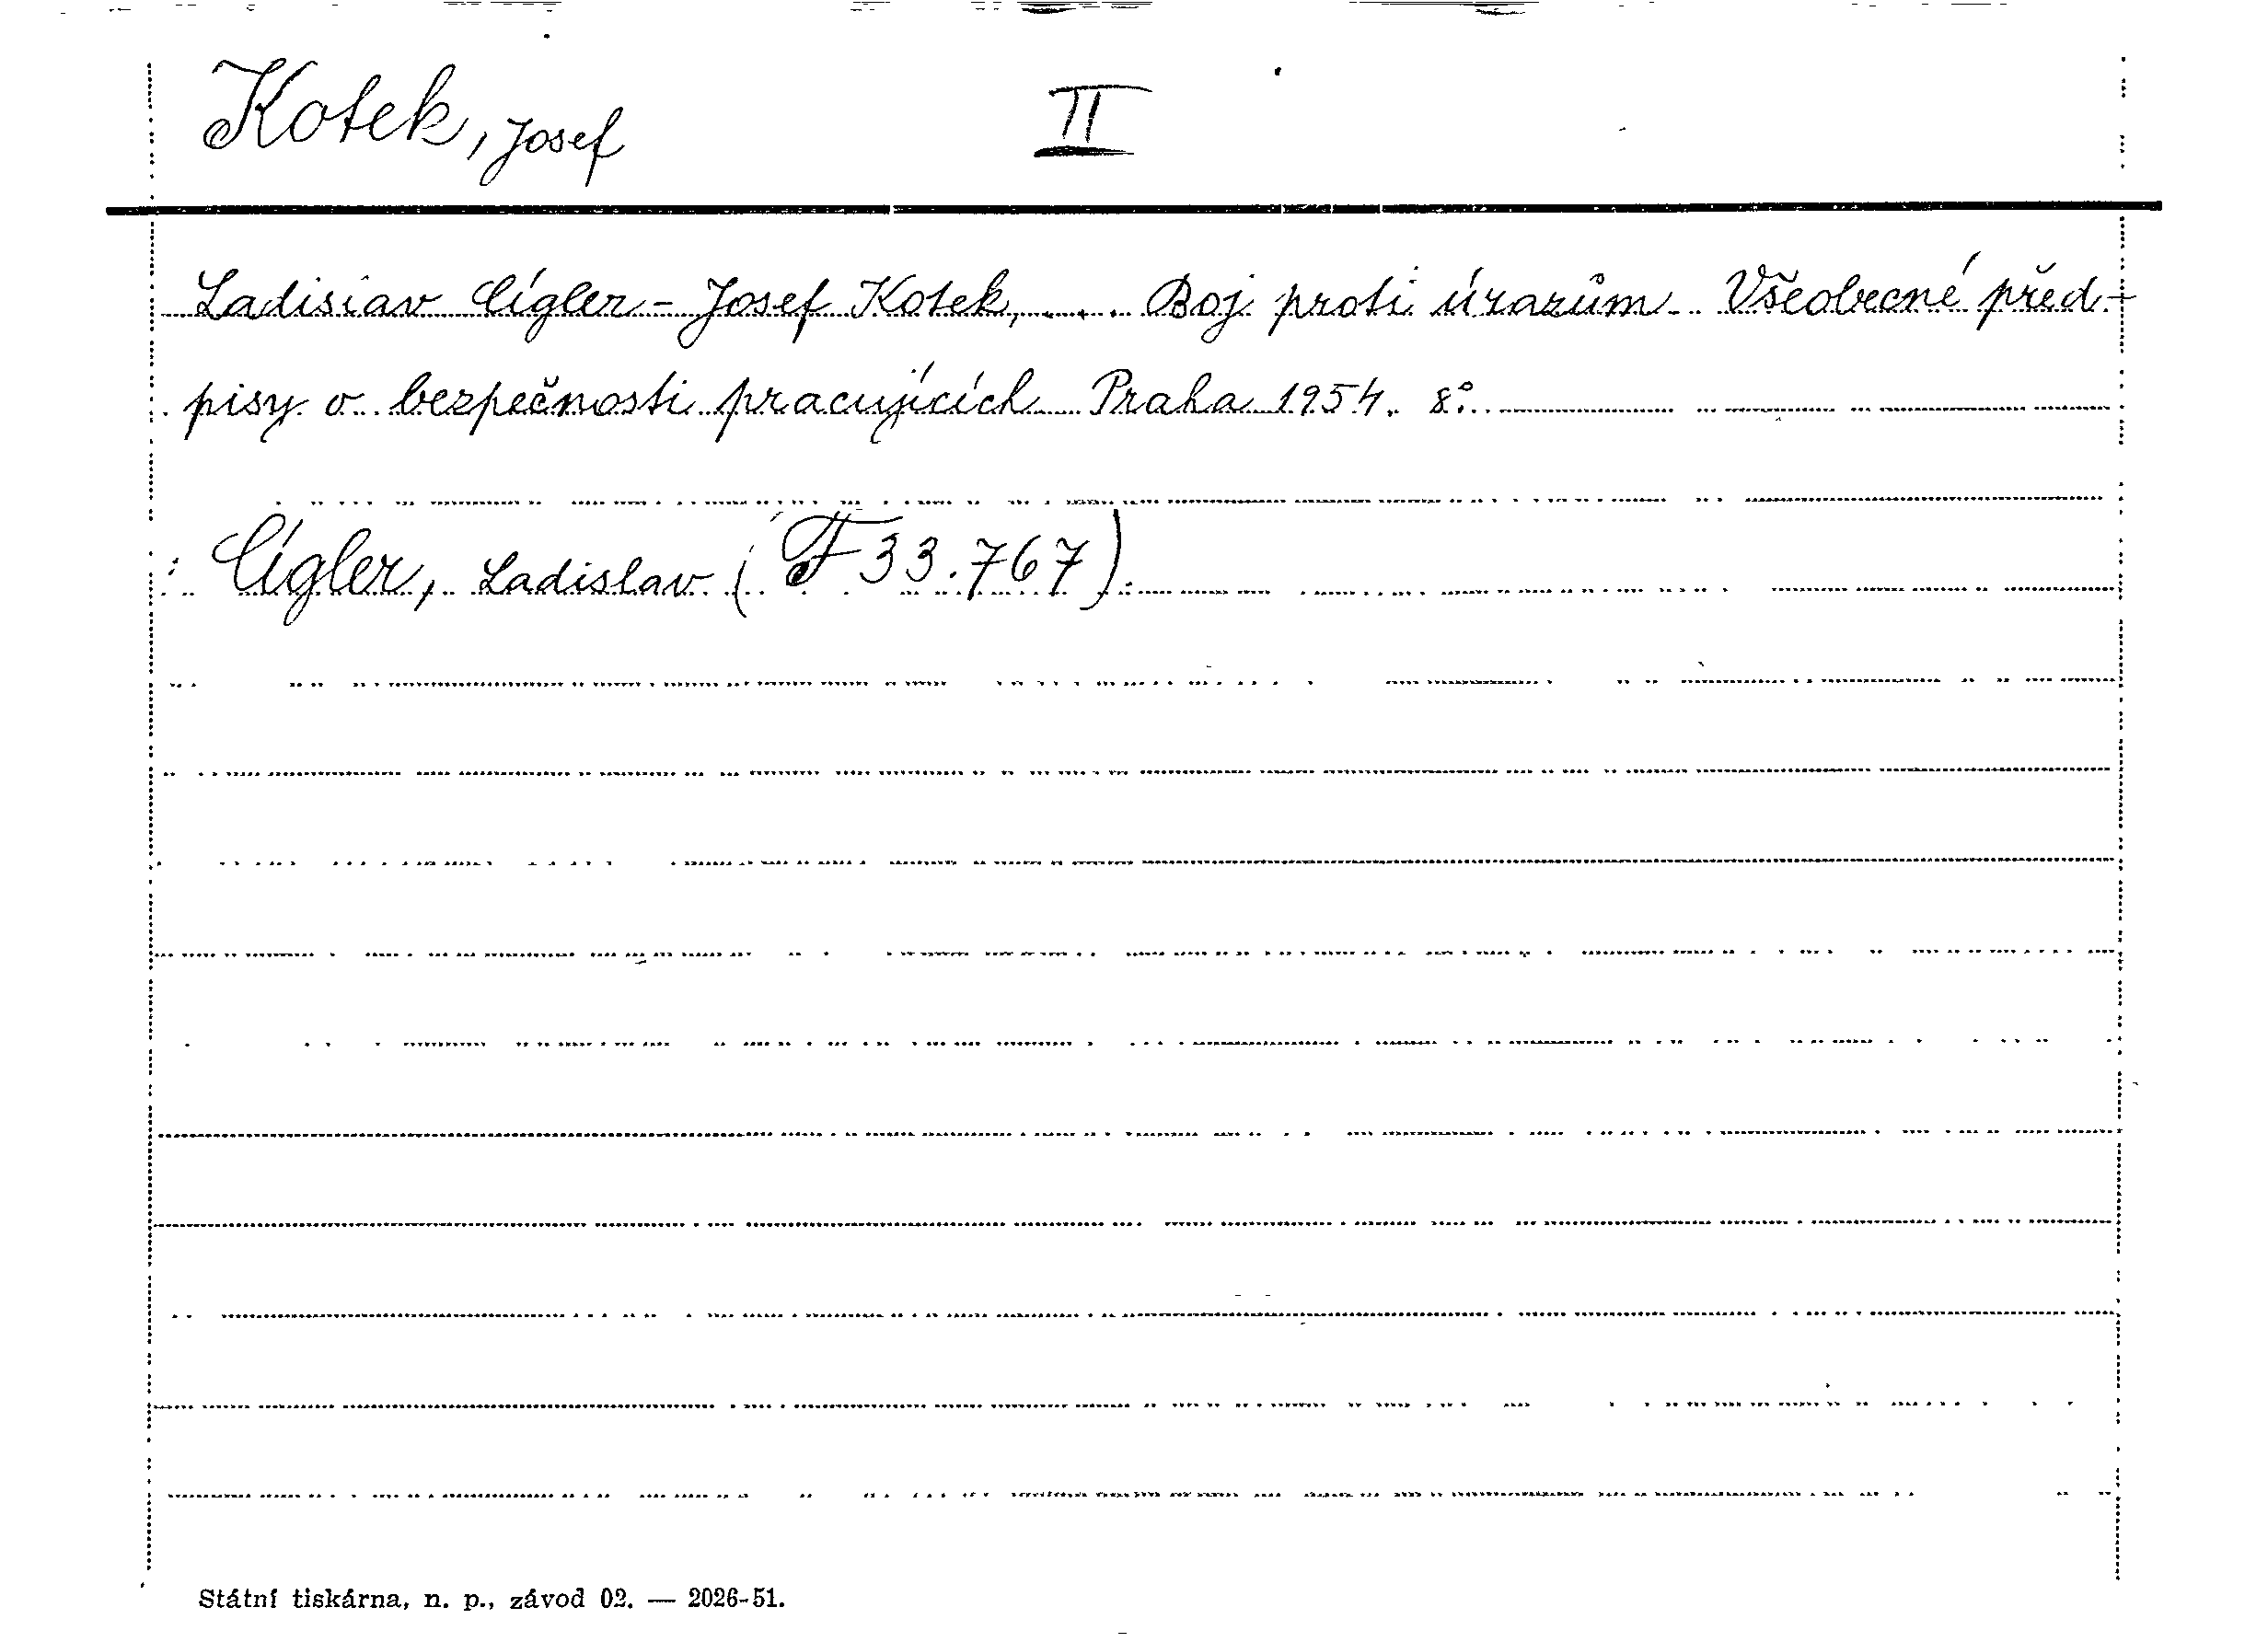 Kotek, Josef II
Ladislav Cígler - Josef Kotek, ... Boj proti úrazům. Všeobecné před-
pisy o bezpečnosti pracujících. Praha 1954. 8°.
Cígler, Ladislav (F 33.767).
Státní tiskárna, n. p., závod 02. — 2026-51.